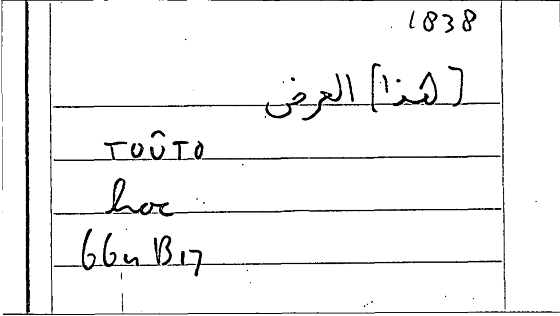 1838
[هذا] العرض
τοῦτο
hoc
66a B17